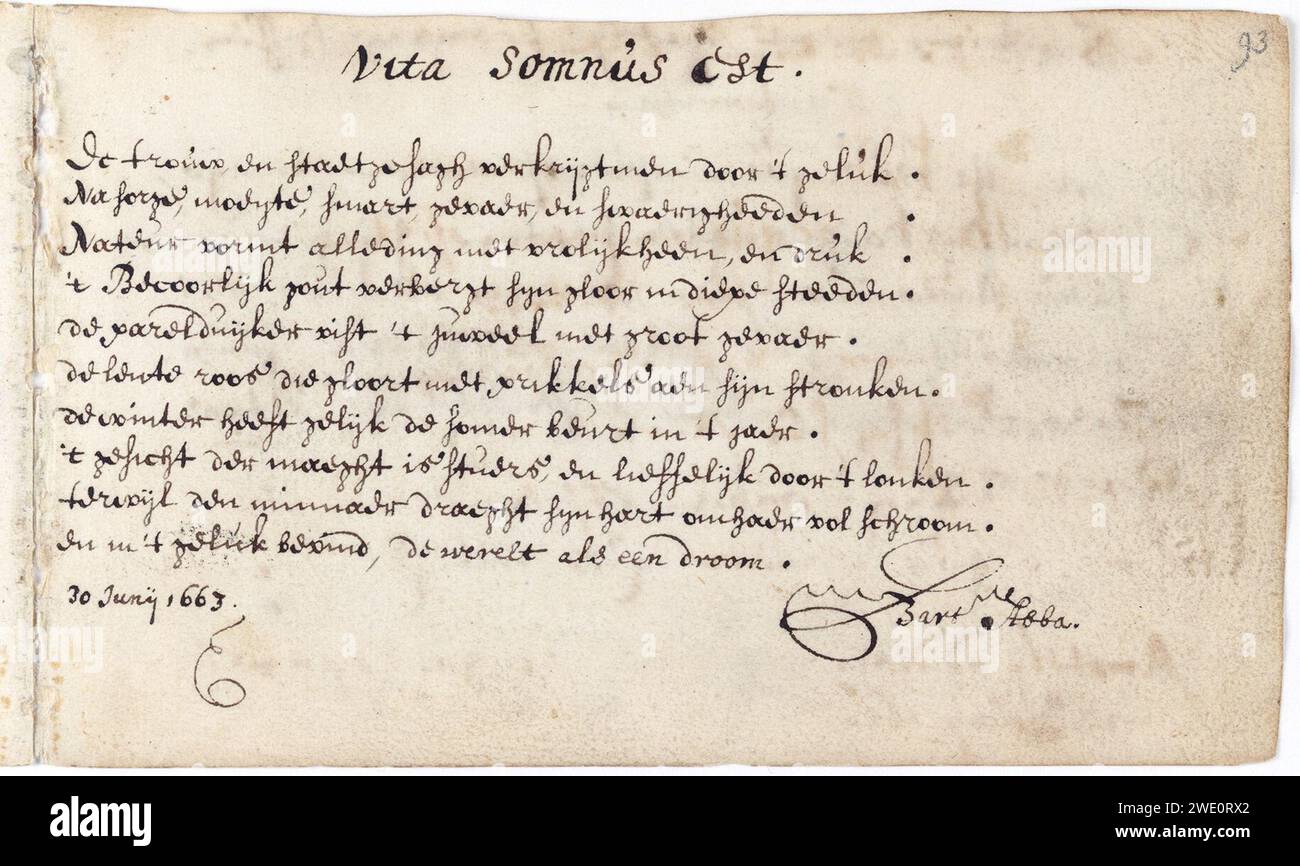 93
Vita Somnus Est.
De trouw, en staetzesagh verkrijgtmen door 't geluk.
Na sorge, moeyte, smart, gevaer, en swaerigheeden.
Nateur vormt alleding met vrolijkheen, en druk.
't Becoorlijk gout verbergt sijn gloor in diepe steeden.
de parelduijker vist 't juweel met groot gevaer.
de lente roos die gloort met prikkels aen sijn stronken.
de winter heeft gelijk de somer beurt in 't jaer.
't gesicht der maeght is stuers, en lieffelijk door 't lonken.
terwijl den minnaer draeght sijn hart om haer vol schroom.
en in 't geluk bevind, de werelt als een droom.
30 Junij 1663.
Bart Abba.
alamy
Image ID: 2WE0RX2
www.alamy.com